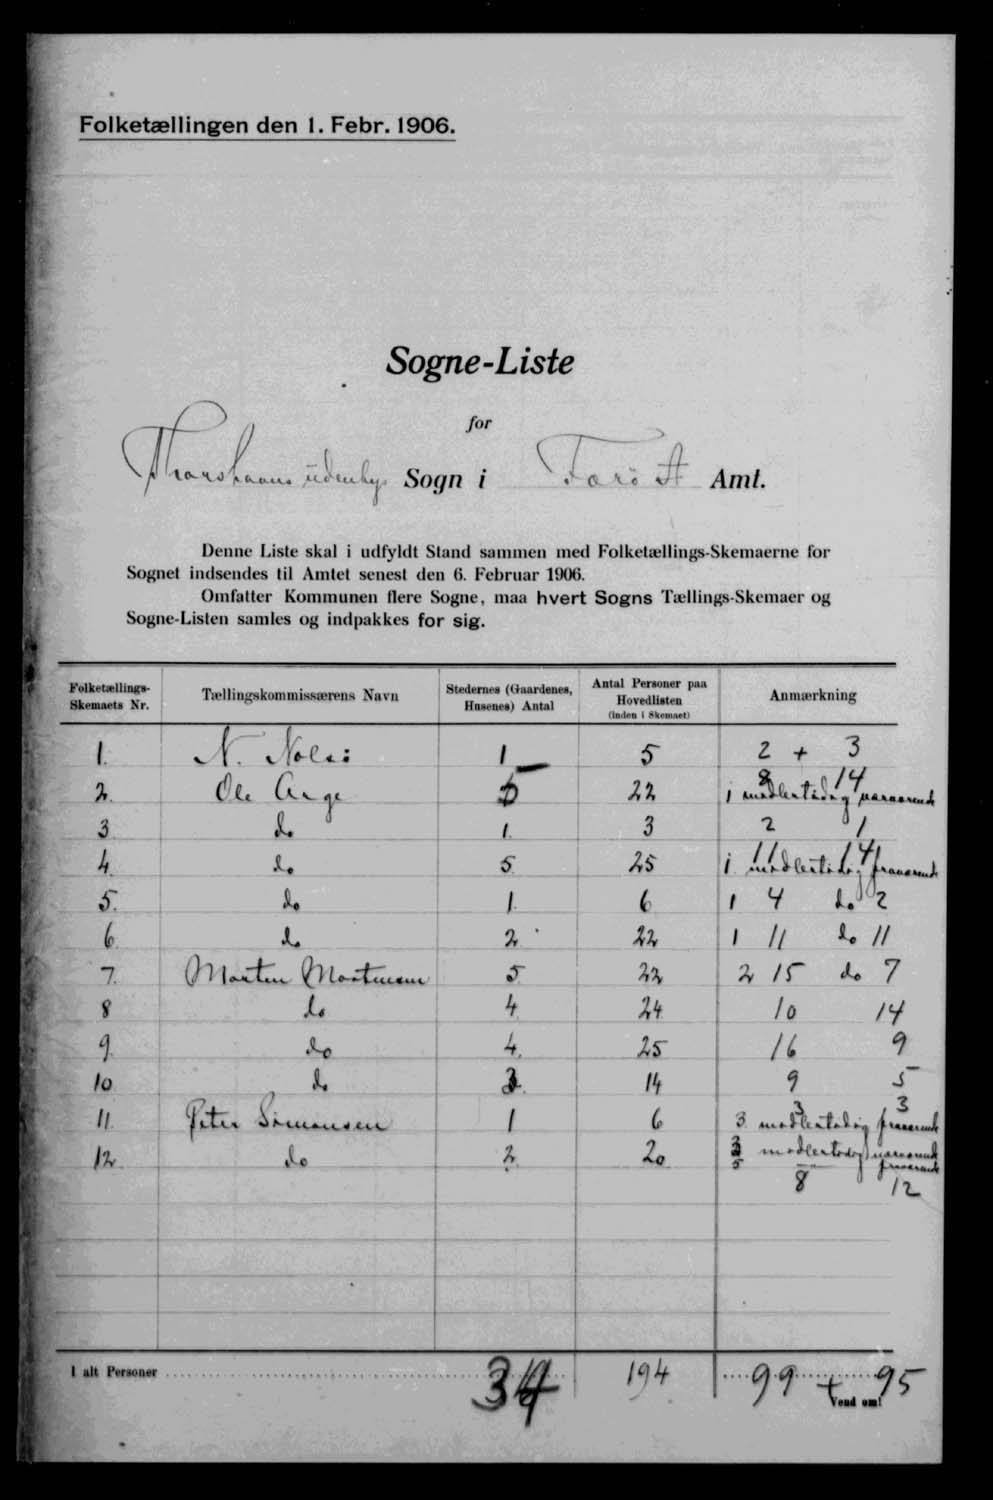 Folketællingen den 1. Febr. 1906.
Sogne-Liste
for
Thorshavns udenbys Sogn i Færø A Amt.
Denne Liste skal i udfyldt Stand sammen med Folketællings-Skemaerne for
Sognet indsendes til Amtet senest den 6. Februar 1906.
Omfatter Kommunen flere Sogne, maa hvert Sogns Tællings-Skemaer og
Sogne-Listen samles og indpakkes for sig.
Folketællings-Skemaets Nr. Tællingskommissærens Navn Stedernes (Gaardenes, Husenes) Antal Antal Personer paa Hovedlisten (inden i Skemaet) Anmærkning
1. N. Nolsø 1 5 2 + 3
8 14
2. Ole Arge 5 22 1 midlertidig nærværende
3 do 1. 3 2 1
11 14
4. do 5. 25 1 midlertidig fraværende
5. do 1. 6 1 4 do 2
6. do 2. 22 1 11 do 11
7. Morten Mortensen 5. 22 2 15 do 7
8 do 4. 24 10 14
9. do 4. 25 16 9
10 do 3. 14 9 5
3 3
11. Peter Simonsen 1 6 3 midlertidig fraværende
12. do 2. 20 3 midlertidig nærværende
5 fraværende
8 12
I alt Personer 34 194 99 + 95
Vend om!